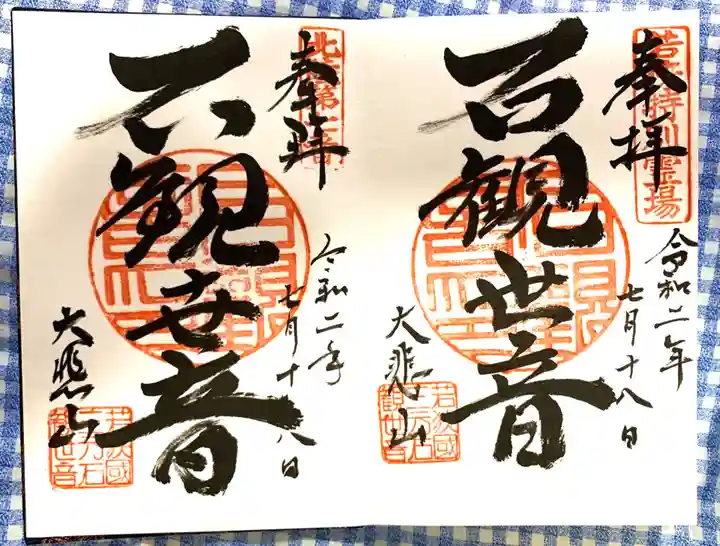 奉拝
令和二年
七月十八日
石観世音
大悲山
若狭國
観世音
奉拝
令和二年
七月十八日
石観世音
大悲山
若狭國
観世音